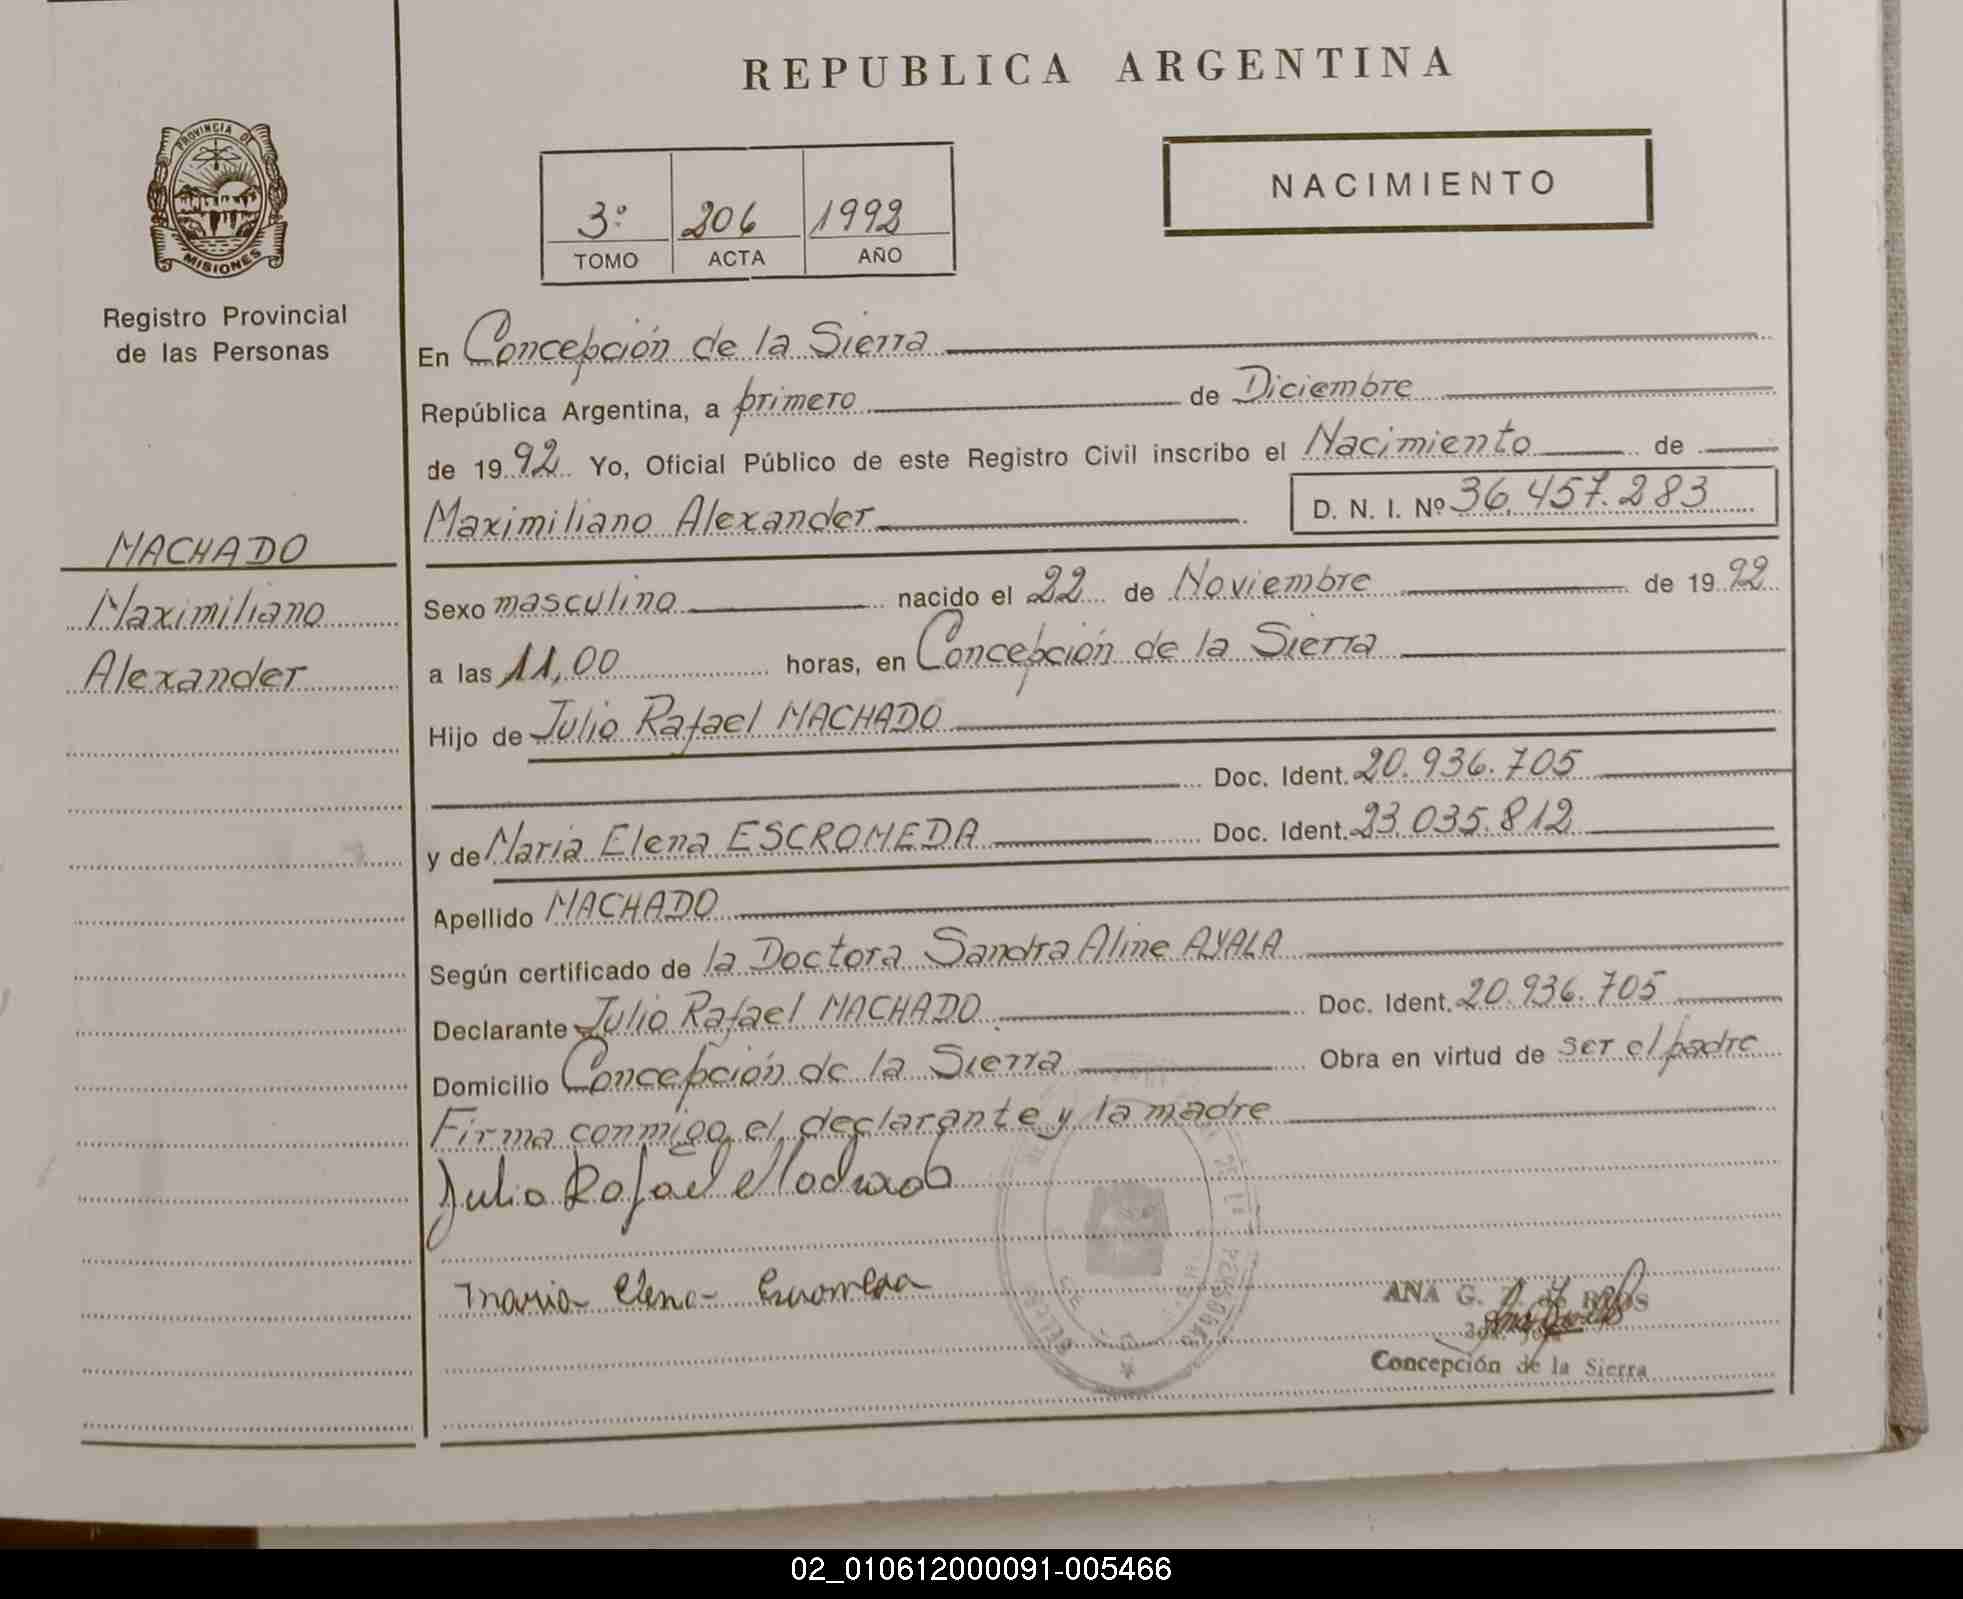 REPUBLICA ARGENTINA
PROVINCIA DE
MISIONES
Registro Provincial
de las Personas
3º 206 1992
TOMO ACTA AÑO
NACIMIENTO
MACHADO
Maximiliano
Alexander
En Concepción de la Sierra
República Argentina, a primero de Diciembre
de 1992 Yo, Oficial Público de este Registro Civil inscribo el Nacimiento de
Maximiliano Alexander D. N. I. Nº 36.457.283
Sexo masculino nacido el 22 de Noviembre de 1992
a las 11,00 horas, en Concepción de la Sierra
Hijo de Julio Rafael MACHADO
Doc. Ident. 20.936.705
y de Maria Elena ESCROMEDA Doc. Ident. 23.035.812
Apellido MACHADO
Según certificado de la Doctora Sandra Aline AYALA
Declarante Julio Rafael MACHADO Doc. Ident. 20.936.705
Domicilio Concepción de la Sierra Obra en virtud de ser el padre
Firma conmigo el declarante y la madre
Julio Rafael Machado
Maria Elena Escromeda
ANA G. de RIOS
Concepción de la Sierra
02_010612000091-005466